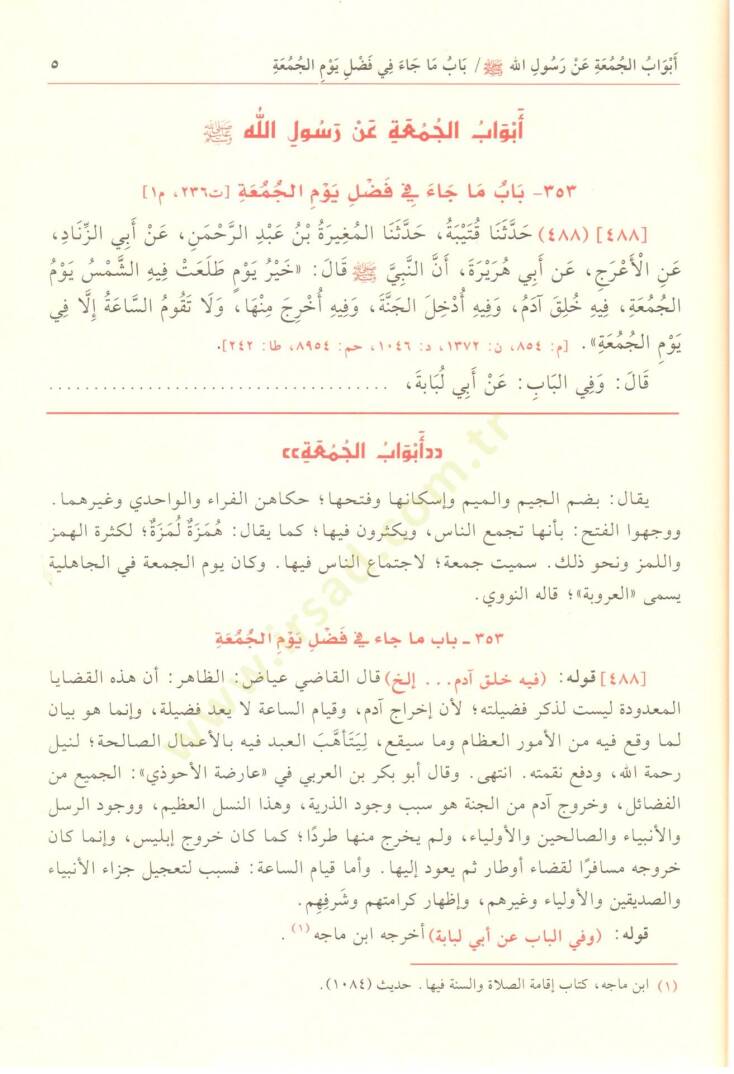 أَبْوَابُ الجُمُعَةِ عَنْ رَسُولِ الله ﷺ / بَابُ مَا جَاءَ فِي فَضْلِ يَوْمِ الجُمُعَةِ ٥
أَبْوَابُ الجُمُعَةِ عَنْ رَسُولِ اللَّه ﷺ
٣٥٣- بَابُ مَا جَاءَ فِي فَضْلِ يَوْمِ الجُمُعَةِ [ت٢٣٦، م١]
[٤٨٨] (٤٨٨) حَدَّثَنَا قُتَيْبَةُ، حَدَّثَنَا المُغِيرَةُ بْنُ عَبْدِ الرَّحْمَنِ، عَنْ أَبِي الزِّنَادِ،
عَنِ الْأَعْرَجِ، عَن أَبِي هُرَيْرَةَ، أَنَّ النَّبِيَّ ﷺ قَالَ: «خَيْرُ يَوْمٍ طَلَعَتْ فِيهِ الشَّمْسُ يَوْمُ
الجُمُعَةِ، فِيهِ خُلِقَ آدَمُ، وَفِيهِ أُدْخِلَ الجَنَّةَ، وَفِيهِ أُخْرِجَ مِنْهَا، وَلَا تَقُومُ السَّاعَةُ إِلَّا فِي
يَوْمِ الجُمُعَةِ». [م: ٨٥٤، ن: ١٣٧٢، د: ١٠٤٦، حم: ٨٩٥٤، طا: ٢٤٢].
قَالَ: وَفِي البَابِ: عَنْ أَبِي لُبَابةَ، ....................................
«أَبْوَابُ الجُمُعَةِ»
يقال: بضم الجيم والميم وإسكانها وفتحها؛ حكاهن الفراء والواحدي وغيرهما.
ووجهوا الفتح: بأنها تجمع الناس، ويكثرون فيها؛ كما يقال: هُمَزَةٌ لُمَزَةٌ؛ لكثرة الهمز
واللمز ونحو ذلك. سميت جمعة؛ لاجتماع الناس فيها. وكان يوم الجمعة في الجاهلية
يسمى «العروبة»؛ قاله النووي.
٣٥٣ ـ باب ما جاء في فَضْلِ يَوْمِ الجُمُعَةِ
[٤٨٨] قوله: (فيه خلق آدم... إلخ) قال القاضي عياض: الظاهر: أن هذه القضايا
المعدودة ليست لذكر فضيلته؛ لأن إخراج آدم، وقيام الساعة لا يعد فضيلة، وإنما هو بيان
لما وقع فيه من الأمور العظام وما سيقع، لِيَتَأهَّبَ العبد فيه بالأعمال الصالحة؛ لنيل
رحمة الله، ودفع نقمته. انتهى. وقال أبو بكر بن العربي في «عارضة الأحوذي»: الجميع من
الفضائل، وخروج آدم من الجنة هو سبب وجود الذرية، وهذا النسل العظيم، ووجود الرسل
والأنبياء والصالحين والأولياء، ولم يخرج منها طردًا؛ كما كان خروج إبليس، وإنما كان
خروجه مسافرًا لقضاء أوطار ثم يعود إليها. وأما قيام الساعة: فسبب لتعجيل جزاء الأنبياء
والصديقين والأولياء وغيرهم، وإظهار كرامتهم وشَرفِهِم.
قوله: (وفي الباب عن أبي لبابة) أخرجه ابن ماجه (١).
(١) ابن ماجه، كتاب إقامة الصلاة والسنة فيها. حديث (١٠٨٤).
www.irsad.com.tr